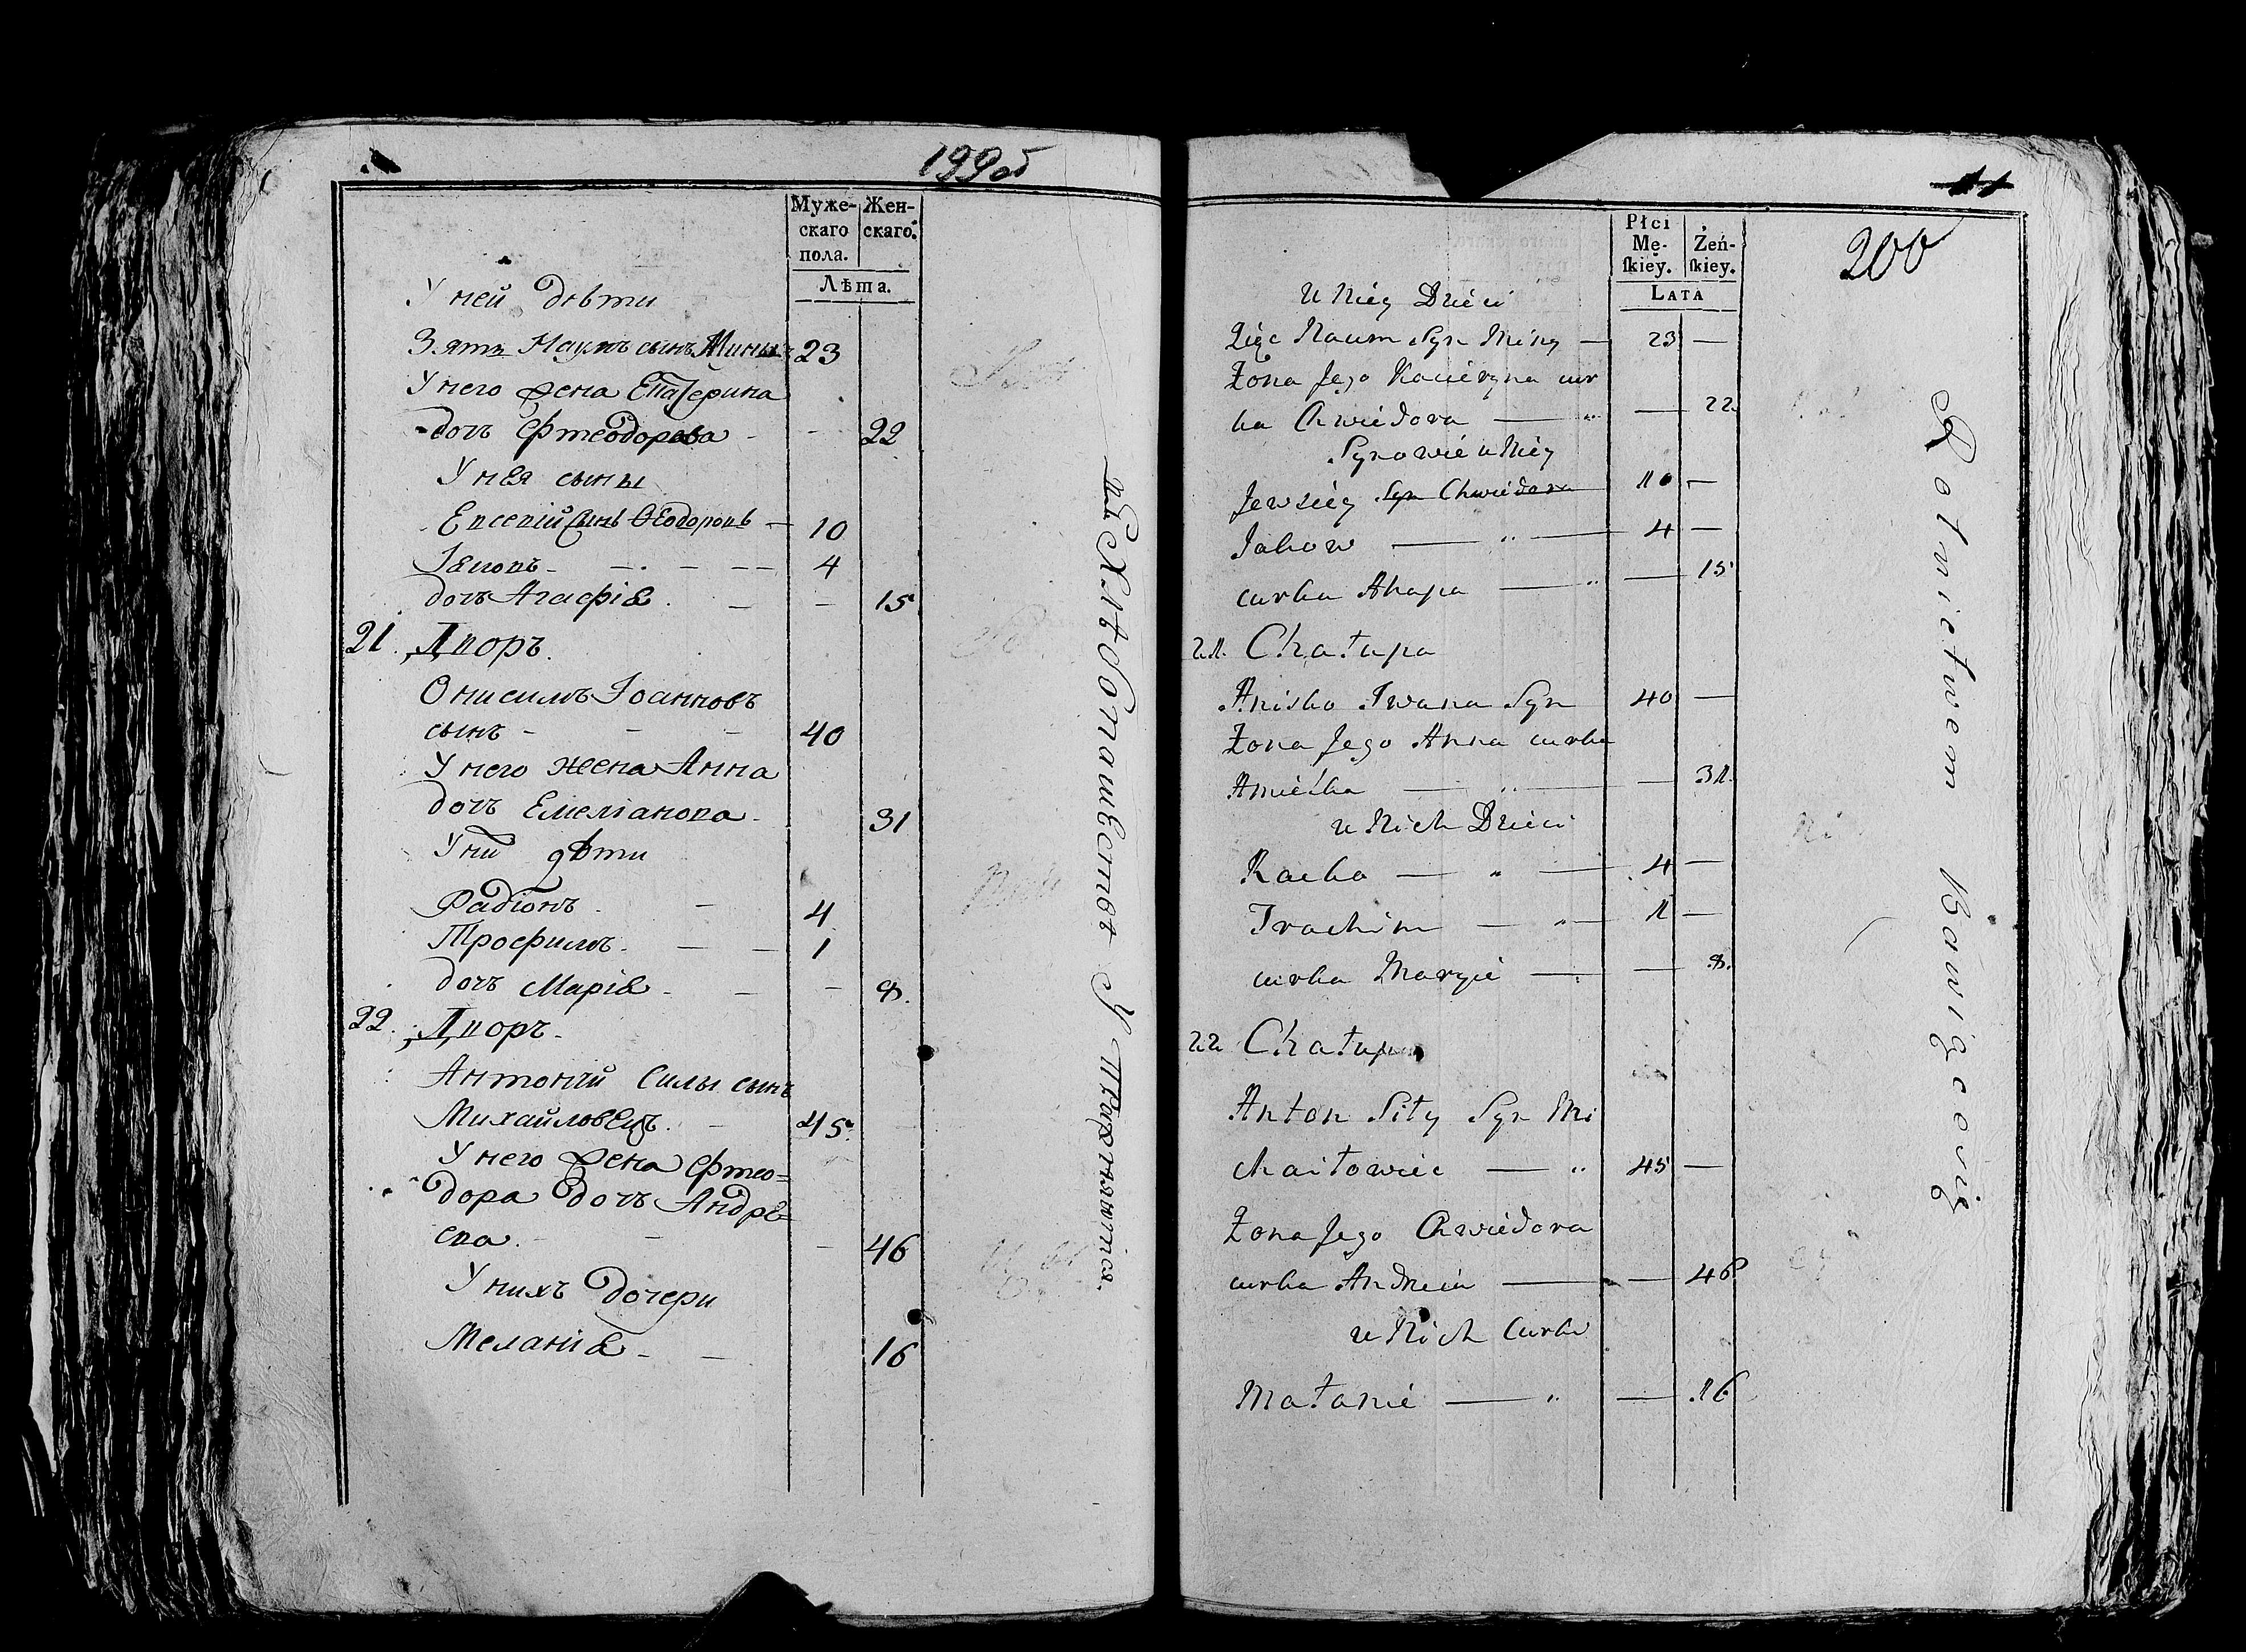 199об
Муже-
скаго
пола.
Жен-
скаго.
Лѣта.
У ней дѣти
Зять Наумъ сынъ Мины 23
У него жена Екатерина
дочь Ѳтеодорова - - 22
У нея сыны
Евсевій сынъ Ѳеодоровъ - 10
Іаковъ - - - - 4
дочь Агафіа - - 15
21. Дворъ.
Онисимъ Іоанновъ
сынъ - - - 40
У него жена Анна
дочь Емеліанова - 31
У ни дѣти
Радіонъ - 4
Трофимъ - - 1
дочь Маріа - - - 8.
22. Дворъ.
Антоній Силы сынъ
Михайловецъ. - 45.
У него жена Ѳтео=
дора дочь Андре=
ева. - - - 46
У нихъ дочери
Меланіа - - 16
Хлѣбопашествѣ Упражняются.
11
200
Płci
Mę-
skiey.
Żeń-
skiey.
Lata
U Niéy Dziéci
Zięć Naum Syn Miny — 23 —
Żona Jego Kacieryna cur
ka Chwiedora — " — 22
Synowié u Niéy
Jewsiéy Syn Chwiedora 10 —
Jakow — " — 4 —
curka Ahapa — " — 15
21. Chałupa
Anisko Iwana Syn 40 —
Żona Jego Anna curka
Amielka — " — — 31.
u Nich Dzieci
Racko — " — 4 —
Trachim — " — 1 —
curka Maryié — — 8.
22 Chałupa
Anton Siły Syn Mi
chaiłowiec — " 45 —
Żona Jego Chwiedora
curka Andreia — — 46
u Nich Curki
Małanié — " — 16
Rolnictwem Bawią cewię